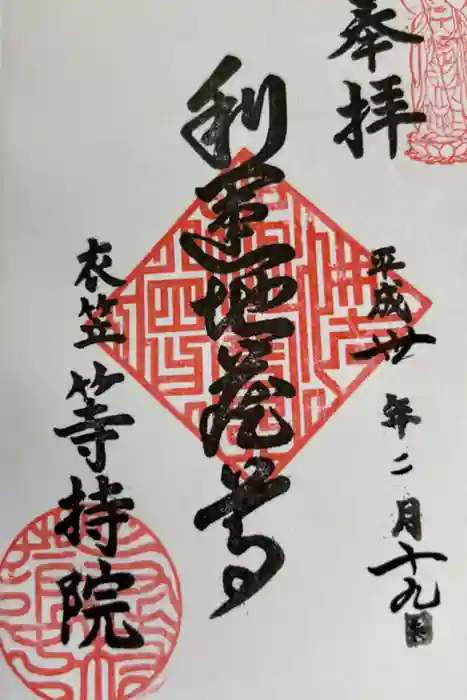 奉拝
平成卅年二月十九
利運地蔵尊
衣笠
等持院